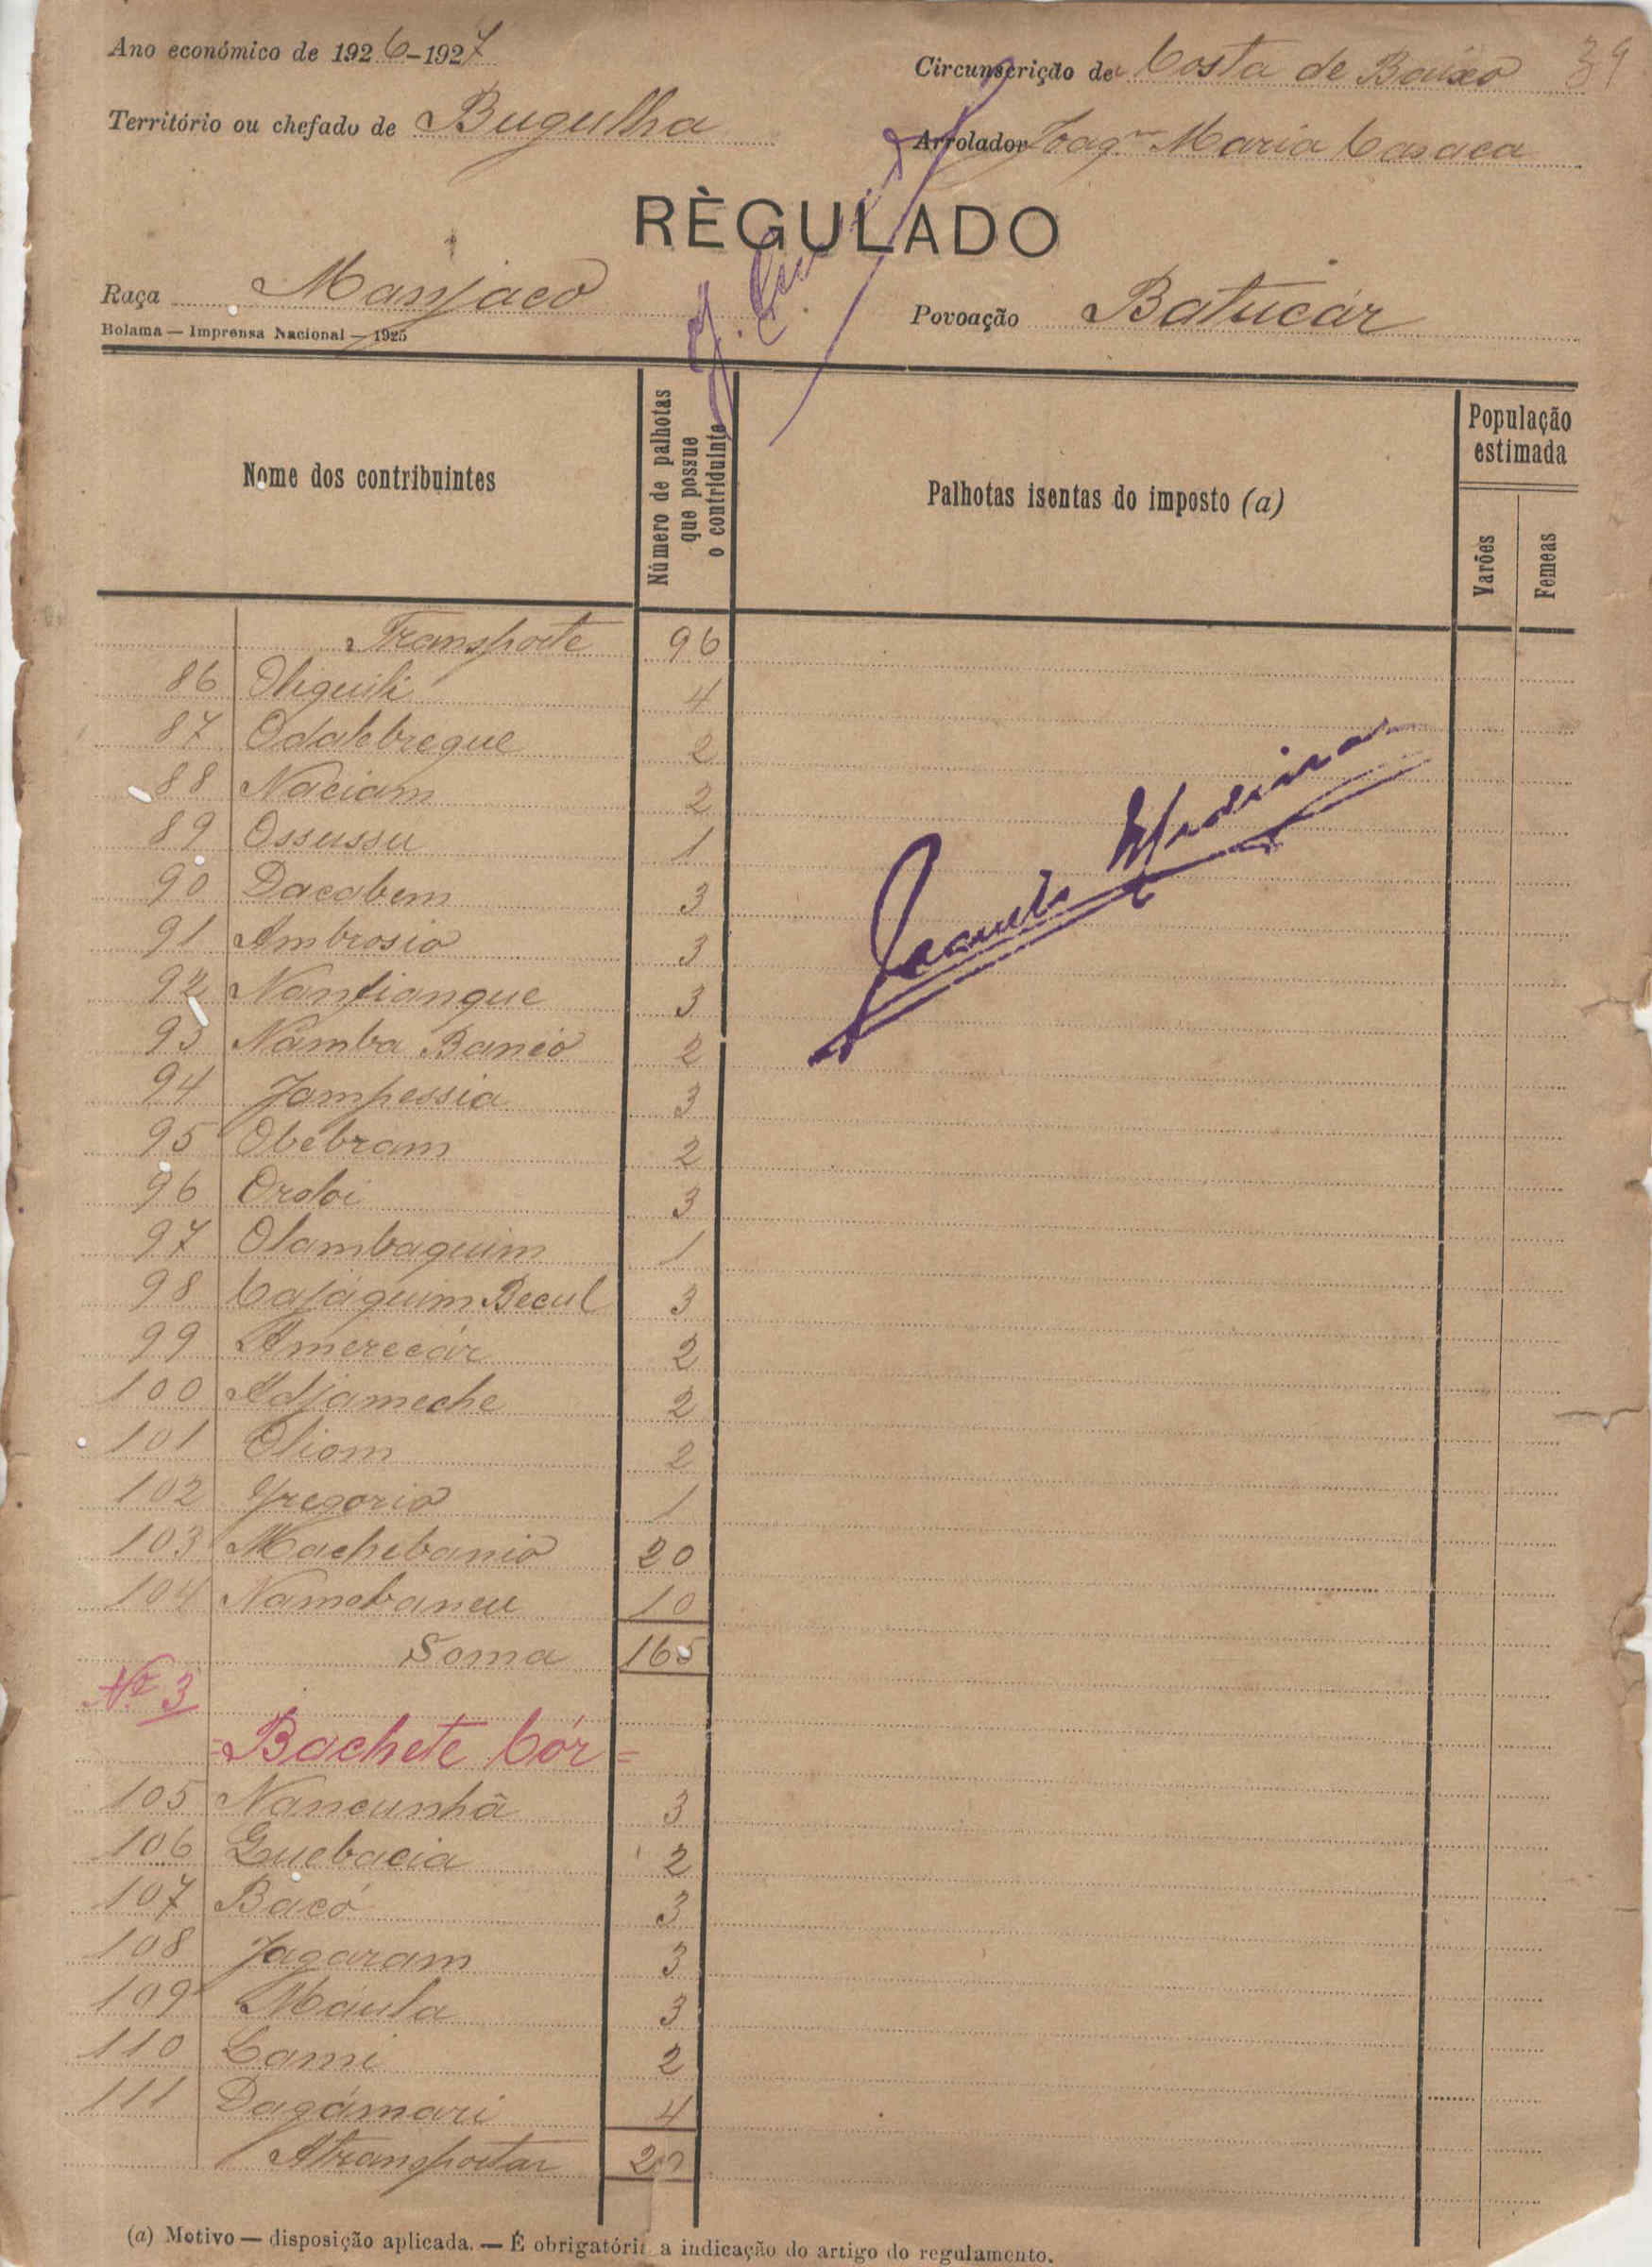 Ano económico de 1926-1927
Circunscrição de Costa de Baixo 39
Território ou chefado de Bugulha
Arrolador Joaqm Maria Casaca
RÈGULADO
Raça Manjaco
Povoação Batucár
Bolama — Imprensa Nacional — 1925
Nome dos contribuintes
Número de palhotas que possue o contriduinte
Palhotas isentas do imposto (a)
População estimada
Varões
Femeas
Transporte 96
86 Obiguili 4
87 Odalebreque 2
88 Naciam 2
89 Ossussu 1
90 Dacabem 3
91 Ambrosio 3
92 Nantiangue 3
93 Námba Banco 2
94 Jampessia 3
95 Obebram 2
96 Oroloi 3
97 Olambaquim 1
98 Cajáquim Becul 3
99 Amerecár 2
100 Adjameche 2
101 Oliom 2
102 Gregorio 1
103 Machebanio 20
104 Namebaneu 10
Soma 165
Nº 3
=Bachete Cór=
105 Nancunhã 3
106 Quebacia 2
107 Bacó 3
108 Jagaram 3
109 Máula 3
110 Lami 2
111 Dagámari 4
Atransportar 20
(a) Motivo — disposição aplicada. — É obrigatória a indicação do artigo do regulamento.